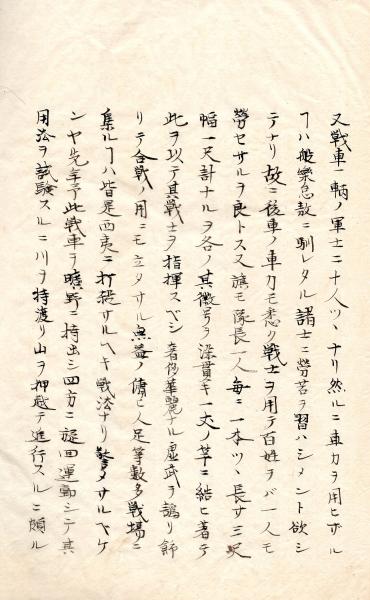 又戰車一輛ノ軍士二十人ツヽナリ然ルニ車力ヲ用ヒザル
ヿハ般樂怠敖ニ馴レタル諸士ニ勞苦ヲ習ハシメント欲シ
テナリ故ニ後車ノ車力モ悉ク戰士ヲ用テ百姓ヲバ一人モ
勞セザルヲ良トス又旗モ隊長一人毎ニ一本ツヽ長サ三尺
幅一尺計ナルヲ各ノ其徽号ヲ染貫キ一丈ノ竿ニ結ヒ著テ
此ヲ以テ其戰士ヲ指揮スベシ奢侈華麗ナル虚武ヲ誇リ飾
リテ合戰ノ用ニモ立タザル無益ノ備ヒ人足等數多戰場ニ
集ルヿハ皆是西夷ニ打殺サルヘキ戰法ナリ警メサルベケ
ンヤ先年予此戰車ヲ曠野ニ持出シ四方ニ旋回運動シテ其
用法ヲ試験スルニ川ヲ持渡リ山ヲ押越テ進行スルニ頗ル